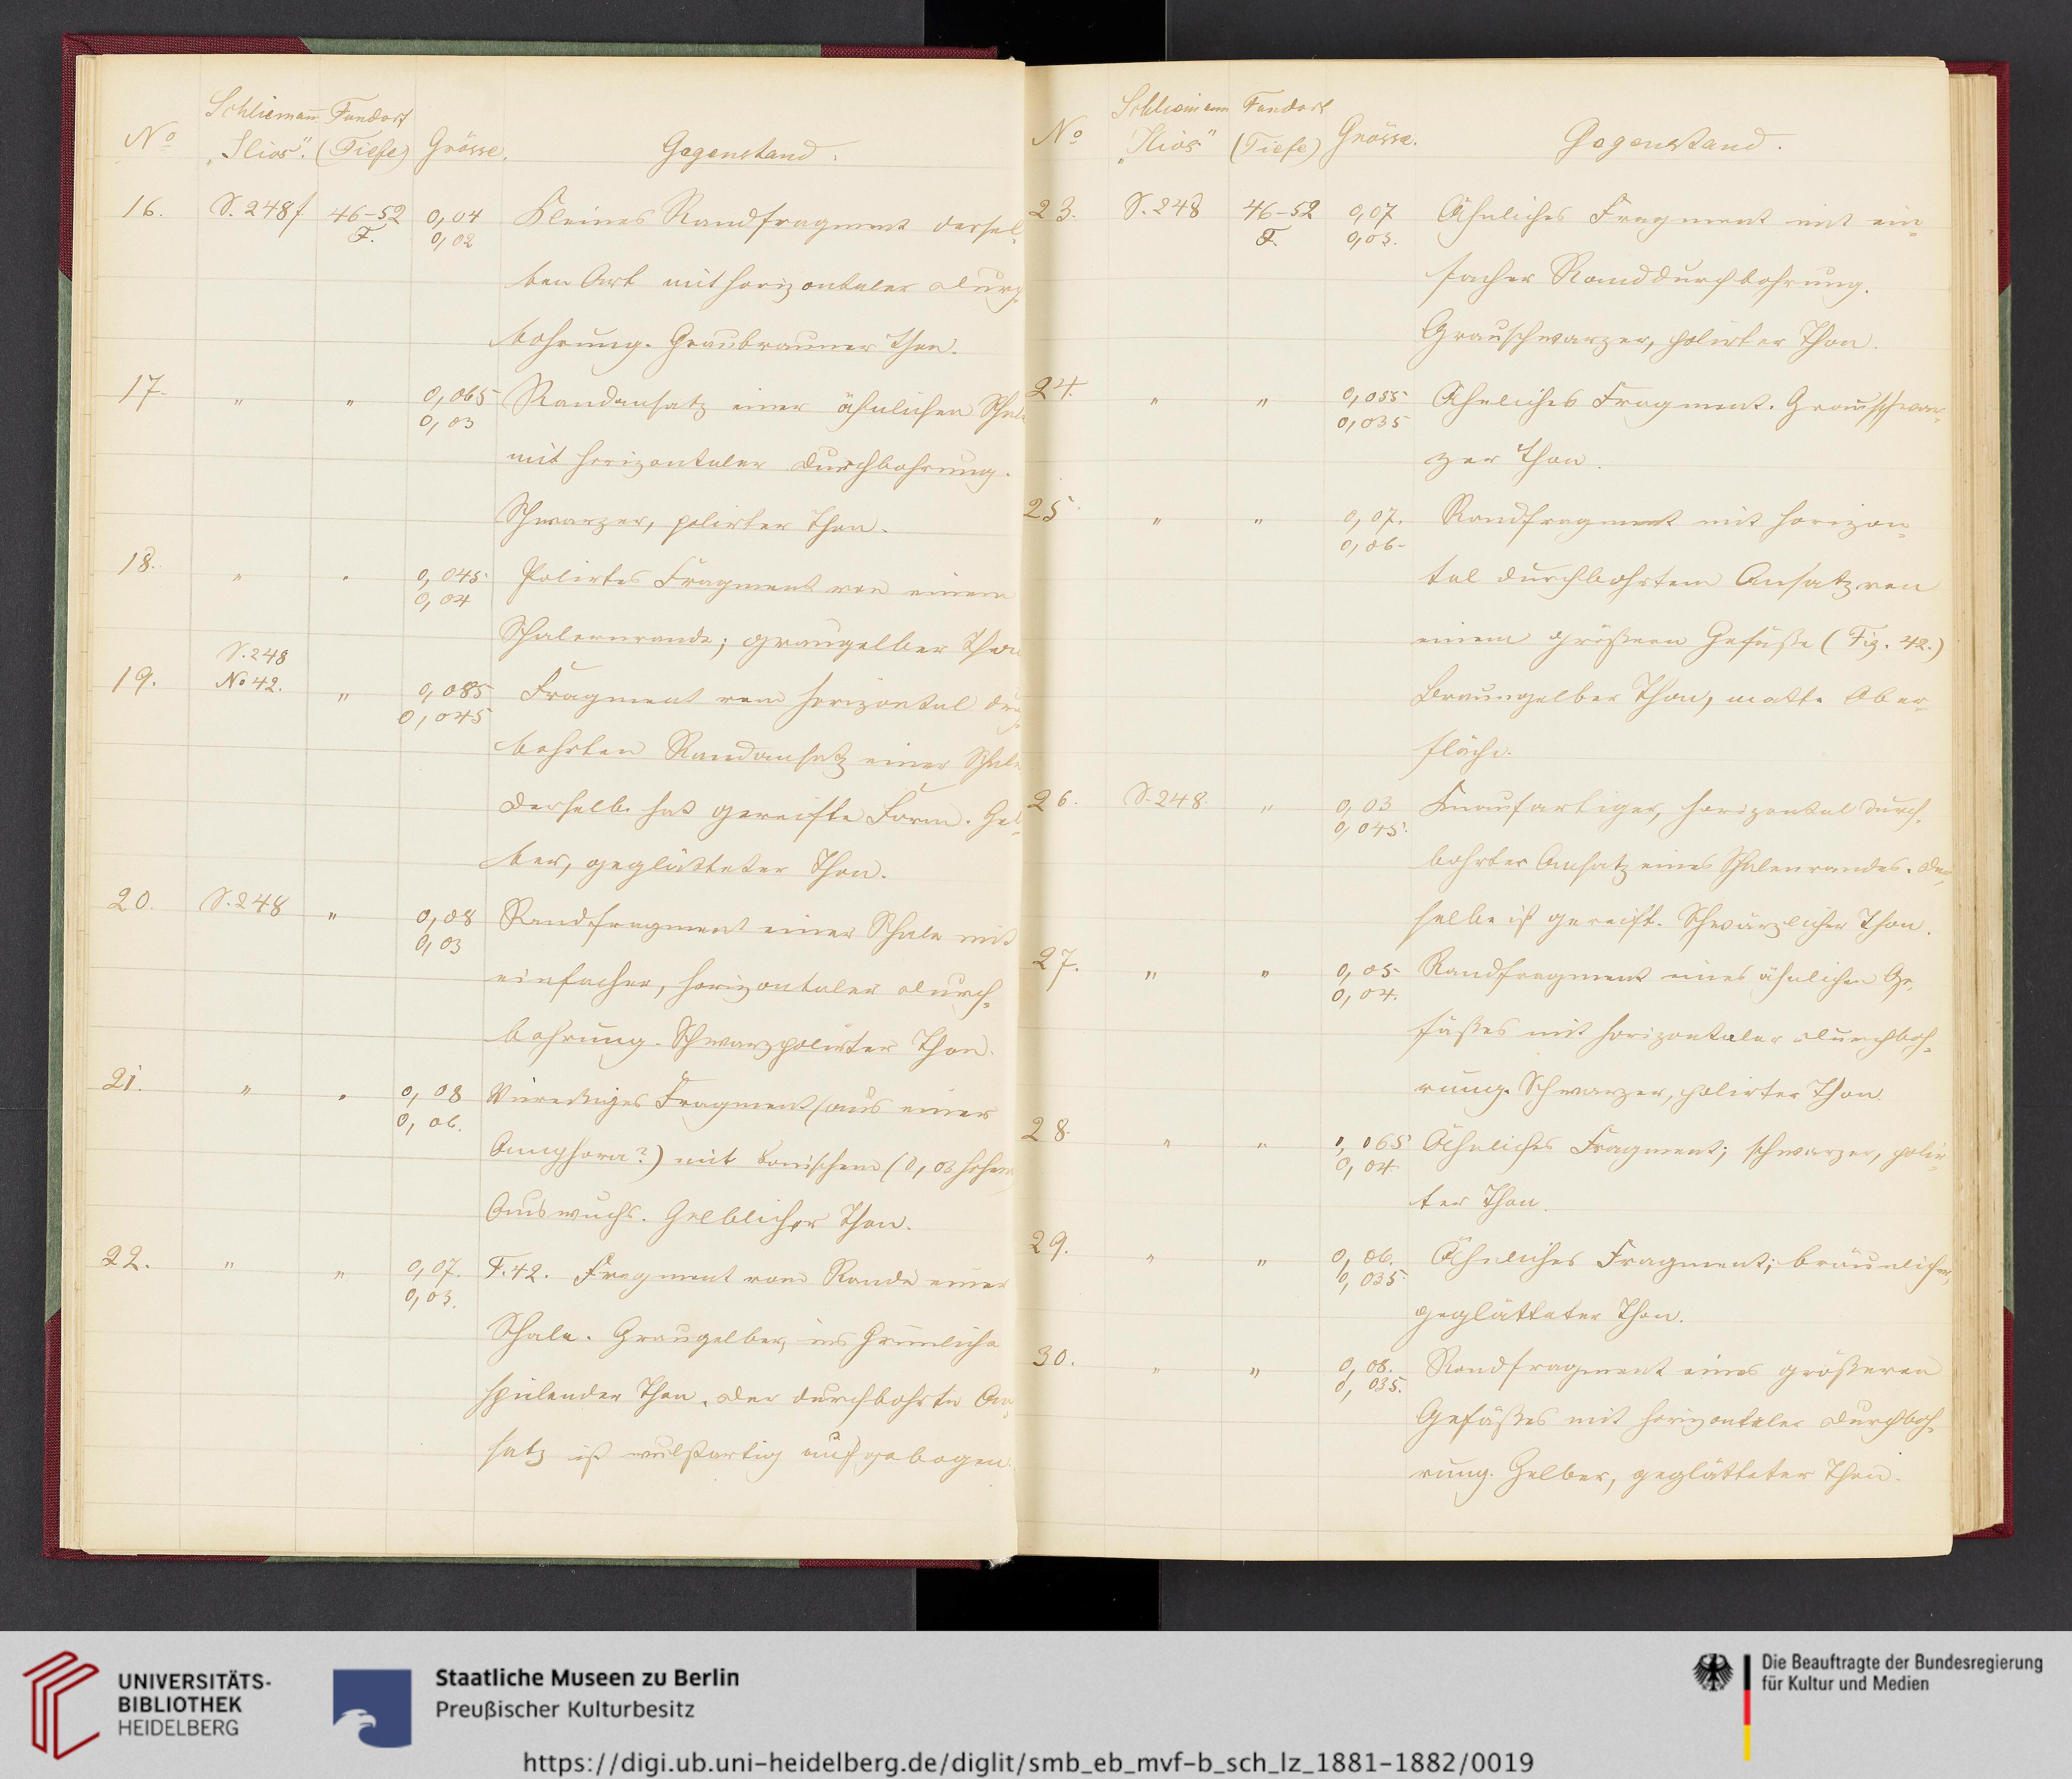 Schliemann Fundort
No „Ilios“. (Tiefe) Grösse. Gegenstand.
16. S. 248 f. 46–52 0,04 Kleines Randfragment dersel-
F. 0,02
ben Art mit horizontaler Durch-
bohrung. Graubrauner Thon.
17. " " 0,065 Randansatz einer ähnlichen Schale
0,03
mit horizontaler Durchbohrung.
Schwarzer, polirter Thon.
18. " " 0,045 Polirtes Fragment von einem
0,04
Schalenrande; graugelber Thon
S. 248
19. No 42. " 0,085 Fragment vom horizontal durch-
0,045
bohrten Randansatz einer Schale
derselbe hat gereifte Form. Gel-
ber, geglätteter Thon.
20. S. 248 " 0,08 Randfragment einer Schale mit
0,03
einfacher, horizontaler Durch-
bohrung. Schwarzpolirter Thon.
21. " " 0,08 Viereckiges Fragment (aus einer
0,06.
Amphora?) mit konischem (0,03 hohem)
Auswuchs. Gelblicher Thon.
22. " " 0,07. F. 42. Fragment vom Rande einer
0,03.
Schale. Graugelber, ins Grünliche
spielender Thon. Der durchbohrte An-
satz ist wulstartig aufgebogen.
Schliemann Fundort
No „Ilios“ (Tiefe) Grösse. Gegenstand.
23. S. 248 46–52 0,07 Ähnliches Fragment mit ein-
F. 0,03.
facher Randdurchbohrung.
Grauschwarzer, polirter Thon.
24. " " 0,055 Ähnliches Fragment. Grauschwar-
0,035
zer Thon.
25. " " 0,07. Randfragment mit horizon-
0,06-
tal durchbohrtem Ansatz von
einem größern Gefäße (Fig. 42.)
Braungelber Thon, matte Ober-
fläche.
26. S. 248. " 0,03 Knaufartiger, horizontal durch-
0,045.
bohrter Ansatz eines Schalenrandes. Der-
selbe ist gereift. Schwärzlicher Thon.
27. " " 0,05- Randfragment eines ähnlichen Ge-
0,04.
fäßes mit horizontaler Durchboh-
rung. Schwarzer, polirter Thon.
28. " " 0,065 Ähnliches Fragment; schwarzer, polir-
0,04
ter Thon.
29. " " 0,06. Ähnliches Fragment; bräunlicher,
0,035.
geglätteter Thon.
30. " " 0,08. Randfragment eines größeren
0,035.
Gefäßes mit horizontaler Durchboh-
rung. Gelber, geglätteter Thon.
UNIVERSITÄTS-
BIBLIOTHEK
HEIDELBERG
Staatliche Museen zu Berlin
Preußischer Kulturbesitz
Die Beauftragte der Bundesregierung
für Kultur und Medien
https://digi.ub.uni-heidelberg.de/diglit/smb_eb_mvf-b_sch_lz_1881-1882/0019